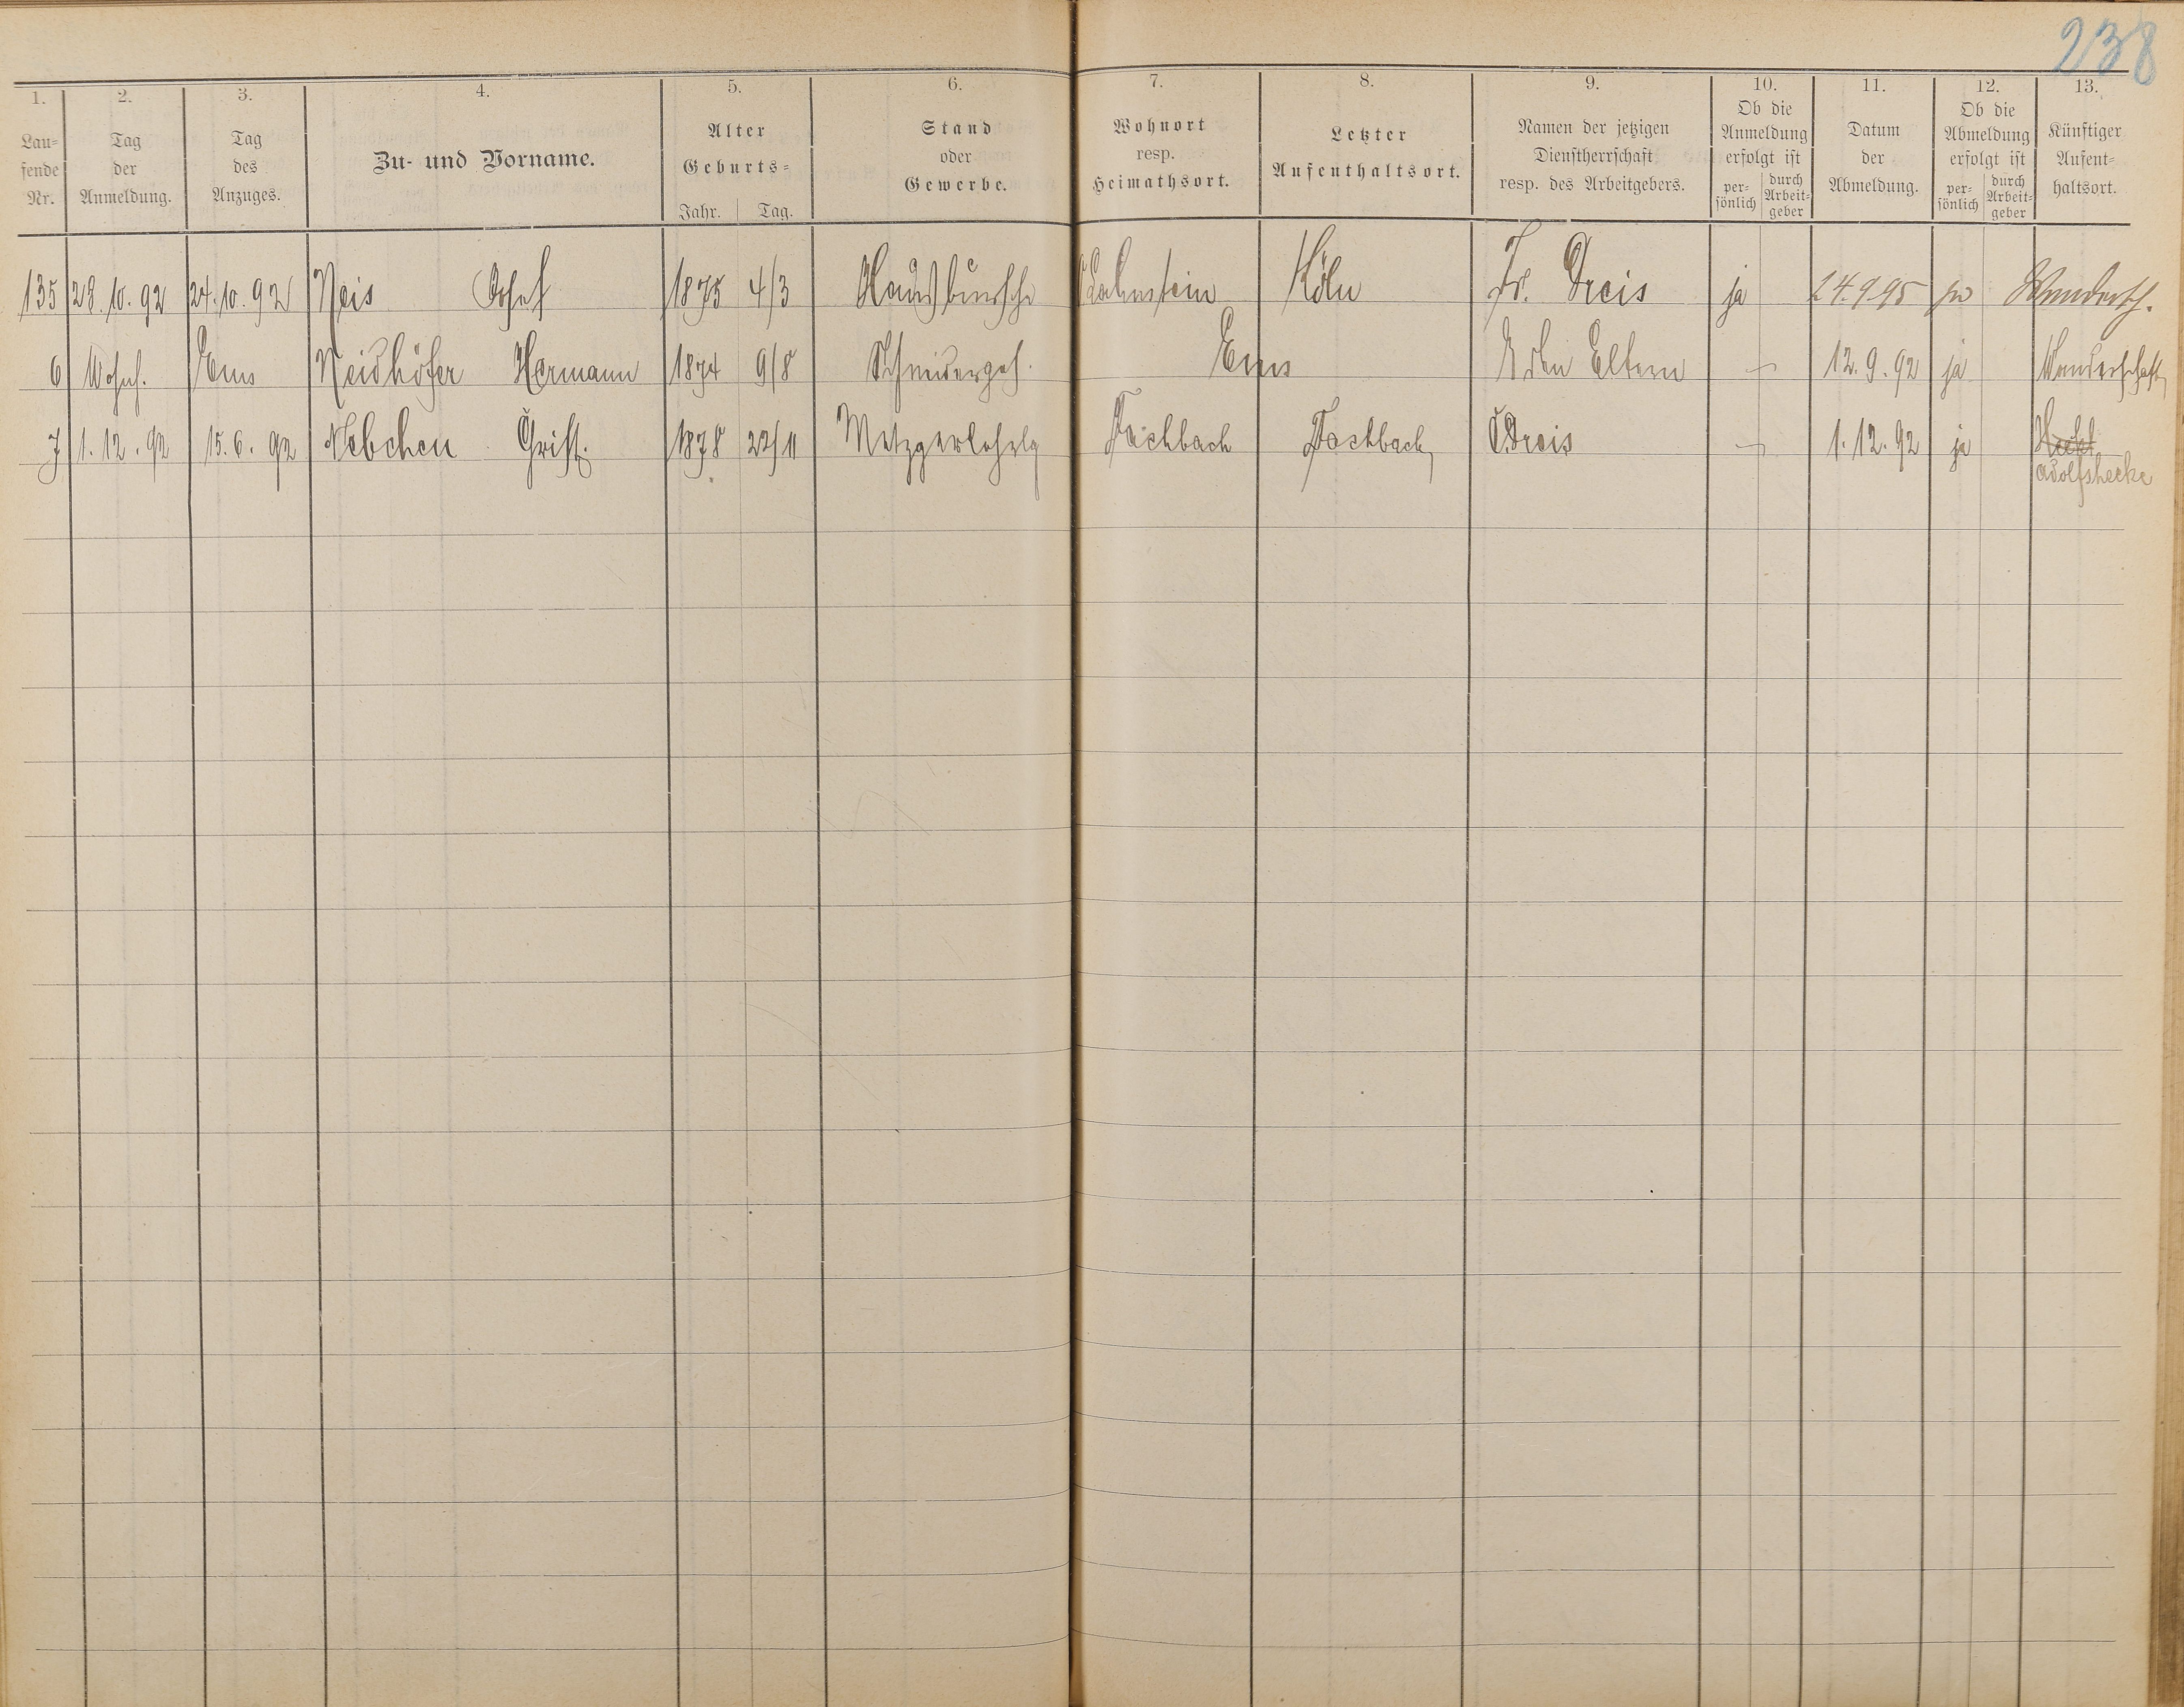 238
1. 2. 3. 4. 5. 6. 7. 8. 9. 10. 11. 12. 13.
Lau=
fende
Nr.
Tag
der
Anmeldung.
Tag
des
Anzuges.
Zu- und Vorname.
Alter
Geburts=
Jahr. Tag.
Stand
oder
Gewerbe.
Wohnort
resp.
Heimathsort.
Letzter
Aufenthaltsort.
Namen der jetzigen
Dienstherrschaft
resp. des Arbeitgebers.
Ob die
Anmeldung
erfolgt ist
per-
sönlich
durch
Arbeit-
geber
Datum
der
Abmeldung.
Ob die
Abmeldung
erfolgt ist
per-
sönlich
durch
Arbeit-
geber
Künftiger
Aufent-
haltsort.
135 28.10.92 24.10.92 Neis Josef 1875 4/3 Hausbursche Lahnstein Köln Fr. Dreis ja 24.9.95 ja Wandersch.
6 Wohnh. Ems Neidhöfer Hermann 1874 9/8 Schneidergeh. Ems Eltern 12.9.92 ja Wanderschaft
7 1.12.92 15.6.92 Nebchen Christ. 1878 22/11 Metzgerlehrlg Fachbach Fachbach Dreis 1.12.92 ja
Adolfshecke